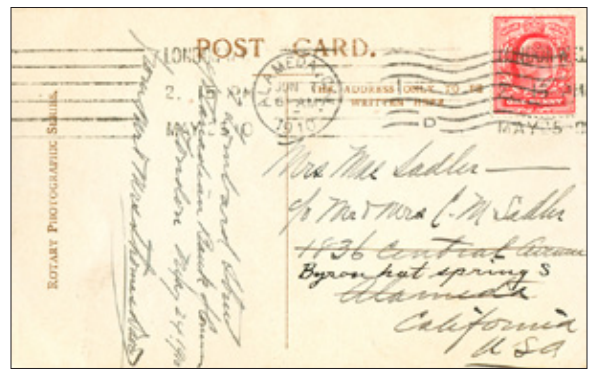 POST CARD.
LONDON
2. 15 PM
MAY 5 0
ALAMEDA, CAL.
JUN
6
1910
THE ADDRESS ONLY TO BE
WRITTEN HERE
D
LONDON W.C.
MAY 5 0
ONE PENNY
ROTARY PHOTOGRAPHIC SERIES.
Lombard Street
Canadian Bank of Com
London May 24 1910
Mrs Mae Sadler
c/o Mr & Mrs C. M Sadler
1836 Central Avenue
Byron hot springs
Alameda
California
USA